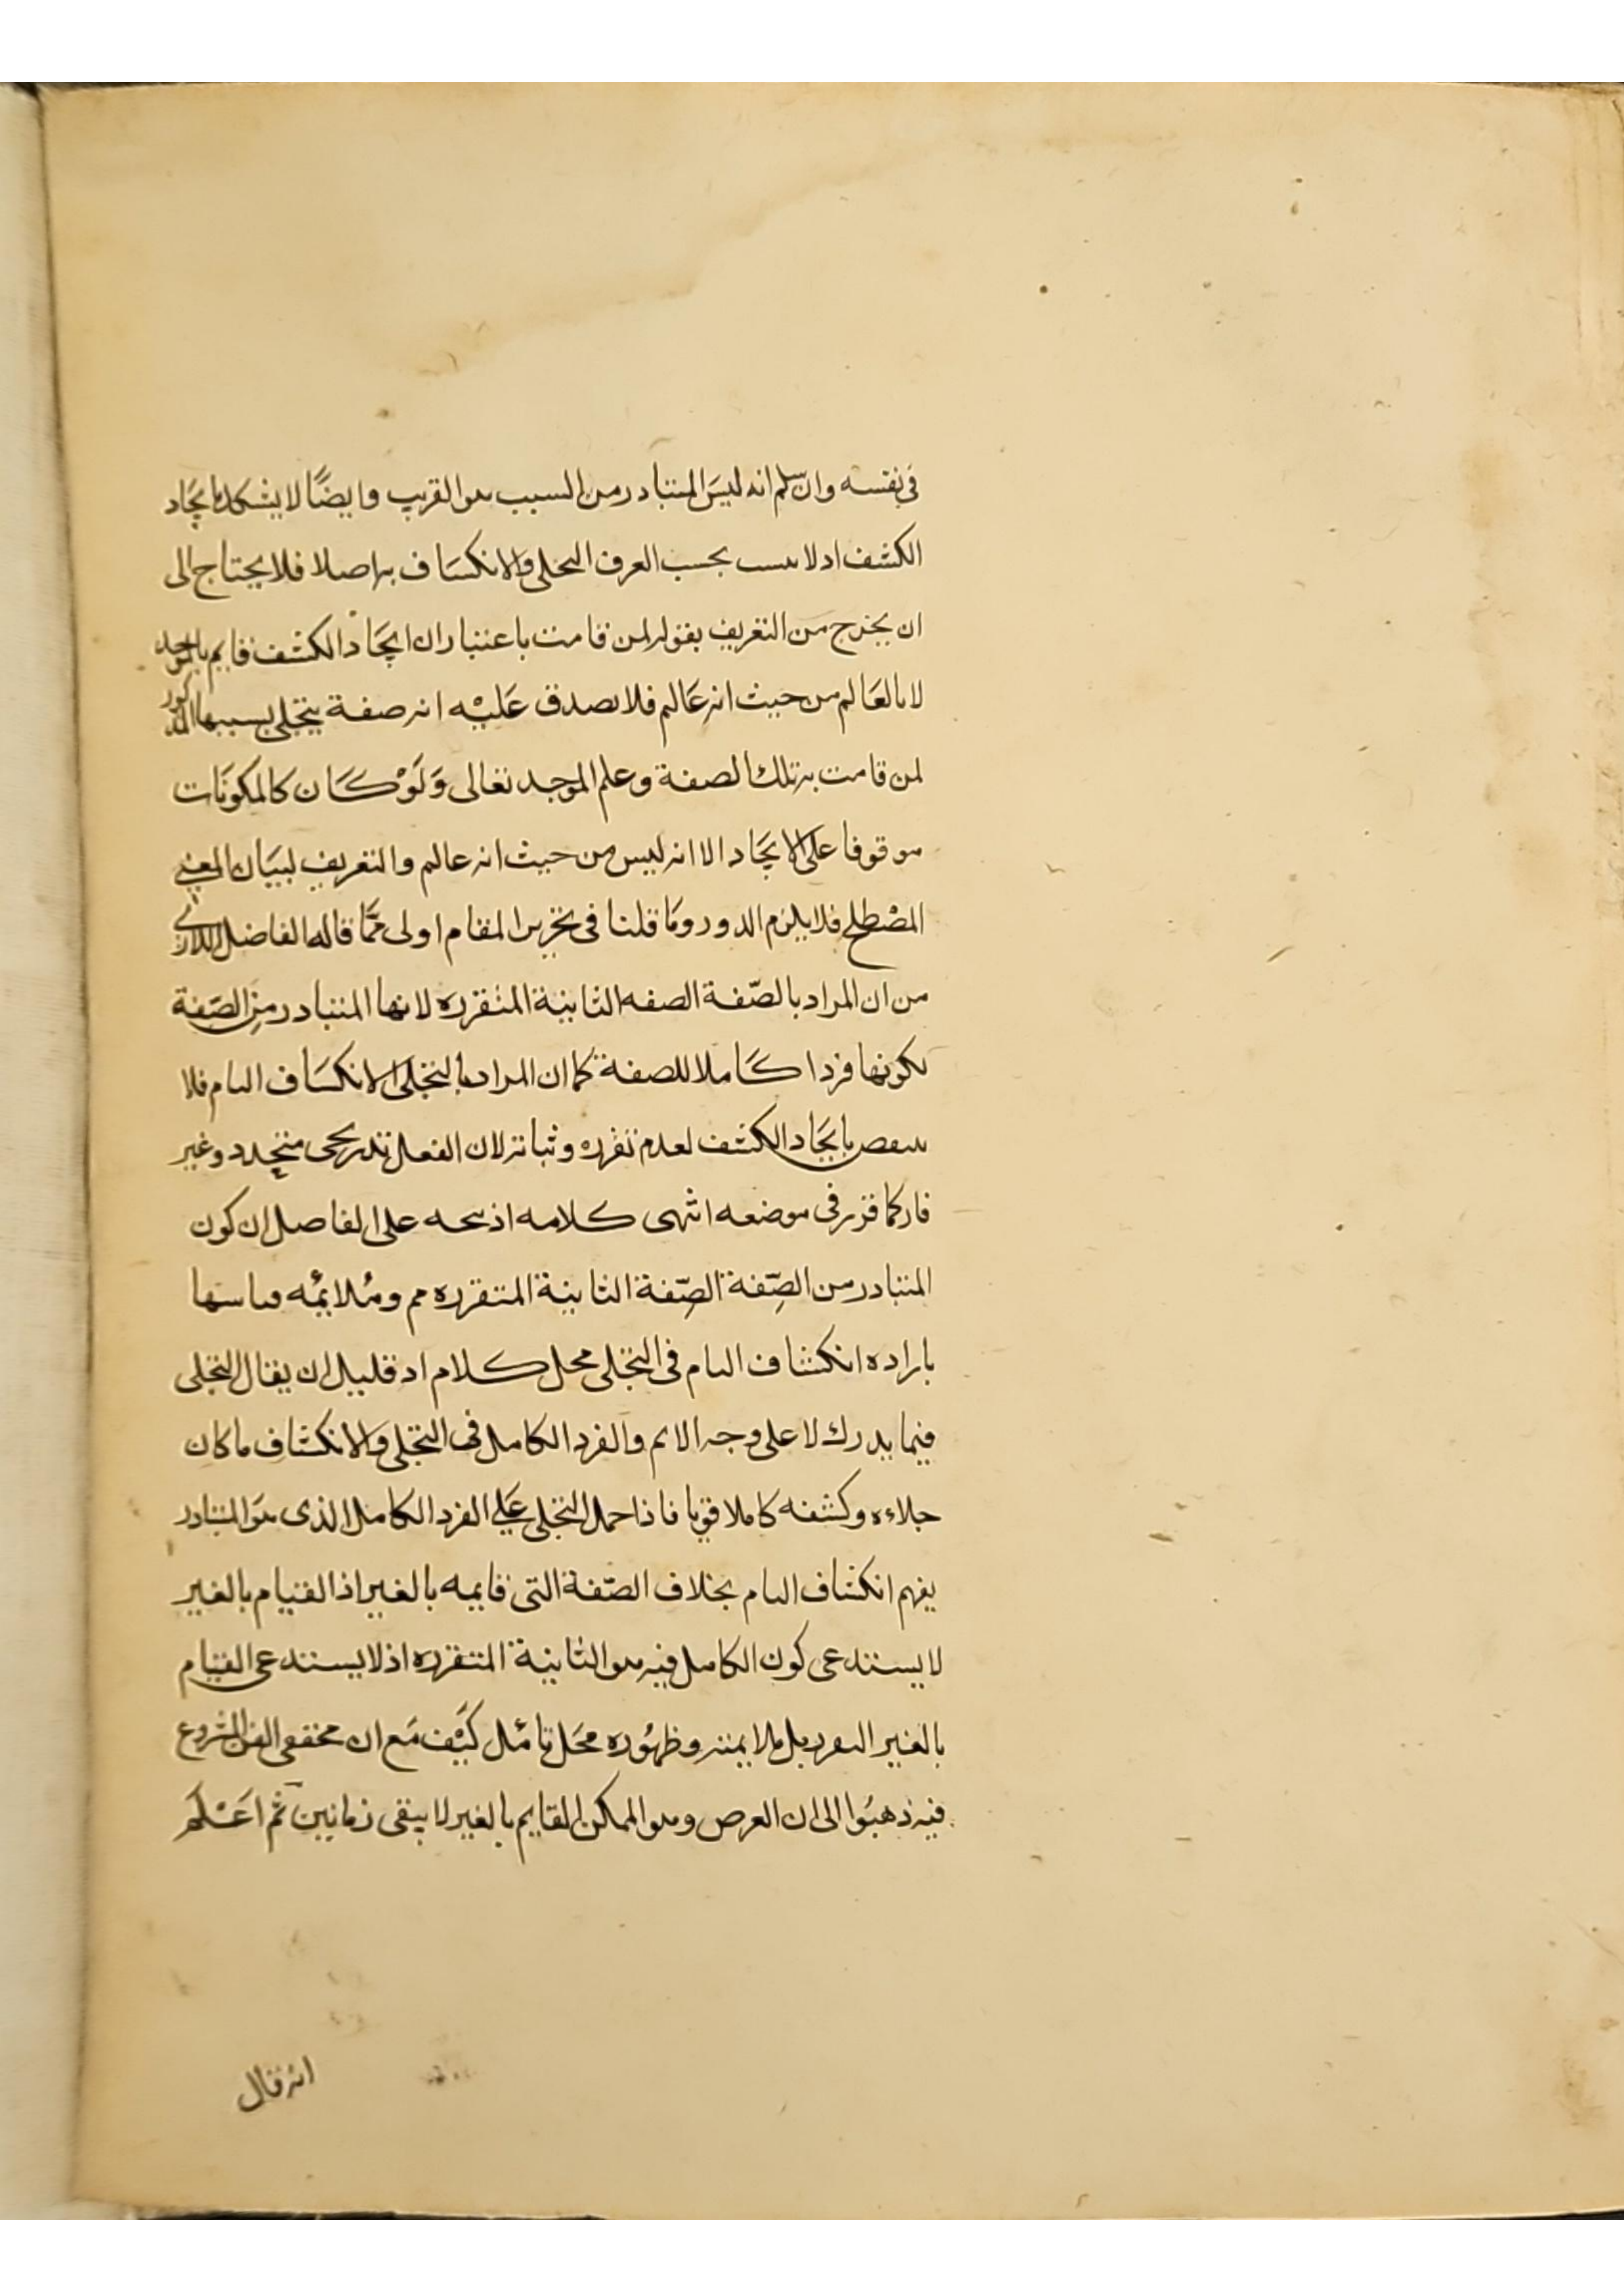 في نفسه وان سلم انه ليس المتبادر من السبب هو القريب وايضًا لا يشكل بايجَاد
الكشف اذ لا ينسب بحسب العرف التجلي والانكشاف به اصلا فلا يحتاج الى
ان يخرج من التعريف بقوله لمن قامت باعتبار ان ايجَاد الكشف قايم بالموجد
لا بالعَالم من حيث انه عَالم فلا يصدق عَليْه انه صفة يتجلى بسببها المذكور
لمن قامت به تلك الصفة وعلم الموجد تعالى وَلَوْ كَان كالمكونَات
موقوفا على الايجَاد الا انه ليس من حيث انه عالم والتعريف لبيَان المعنى
المصْطلح فلا يلزم الدور ومَا قلنا في تحرير المقام اولى ممَّا قاله الفاضل اللاري
من ان المراد بالصّفة الصفه الثابتة المتقرره لانها المتبادر من الصّفة
لكونها فردا كَاملا للصفة كما ان المراد بالتجلى الانكشَاف التام فلا
ينتقض بايجَاد الكشف لعدم تقرره وثباته لان الفعل تدريجي متجدد وغير
قار كما قرر في موضعه انتهى كلامه اذ يتجه على الفاضل ان كون
المتبادر من الصِّفة الصِّفة الثابتة المتقرره مم ومُلايمُه قياسها
باراده انكشاف التام في التجلى محل كلام اذ قليل ان يقال التجلى
فيما يدرك لا على وجه الاتم والفرد الكامل في التجلى والانكشاف ما كان
جلاءه وكشفه كاملا قويا فاذا حمل التجلى عَلي الفرد الكامل الذى هوَ المتبادر
يفهم انكشاف التام بخلاف الصّفة التي قايمه بالغير اذ القيام بالغير
لا يستدعى كون الكامل فيه هو الثابتة المتقرره اذ لا يستدعى القيام
بالغير التقرر بل ملايمته وظهُوره محَل تامُل كَيْف مَع ان محققى الفن المشروع
فيه ذهبُوا الى ان العرض وهو الممكن القايم بالغير لا يبقى زمانين ثم اعَْلم
انه قال